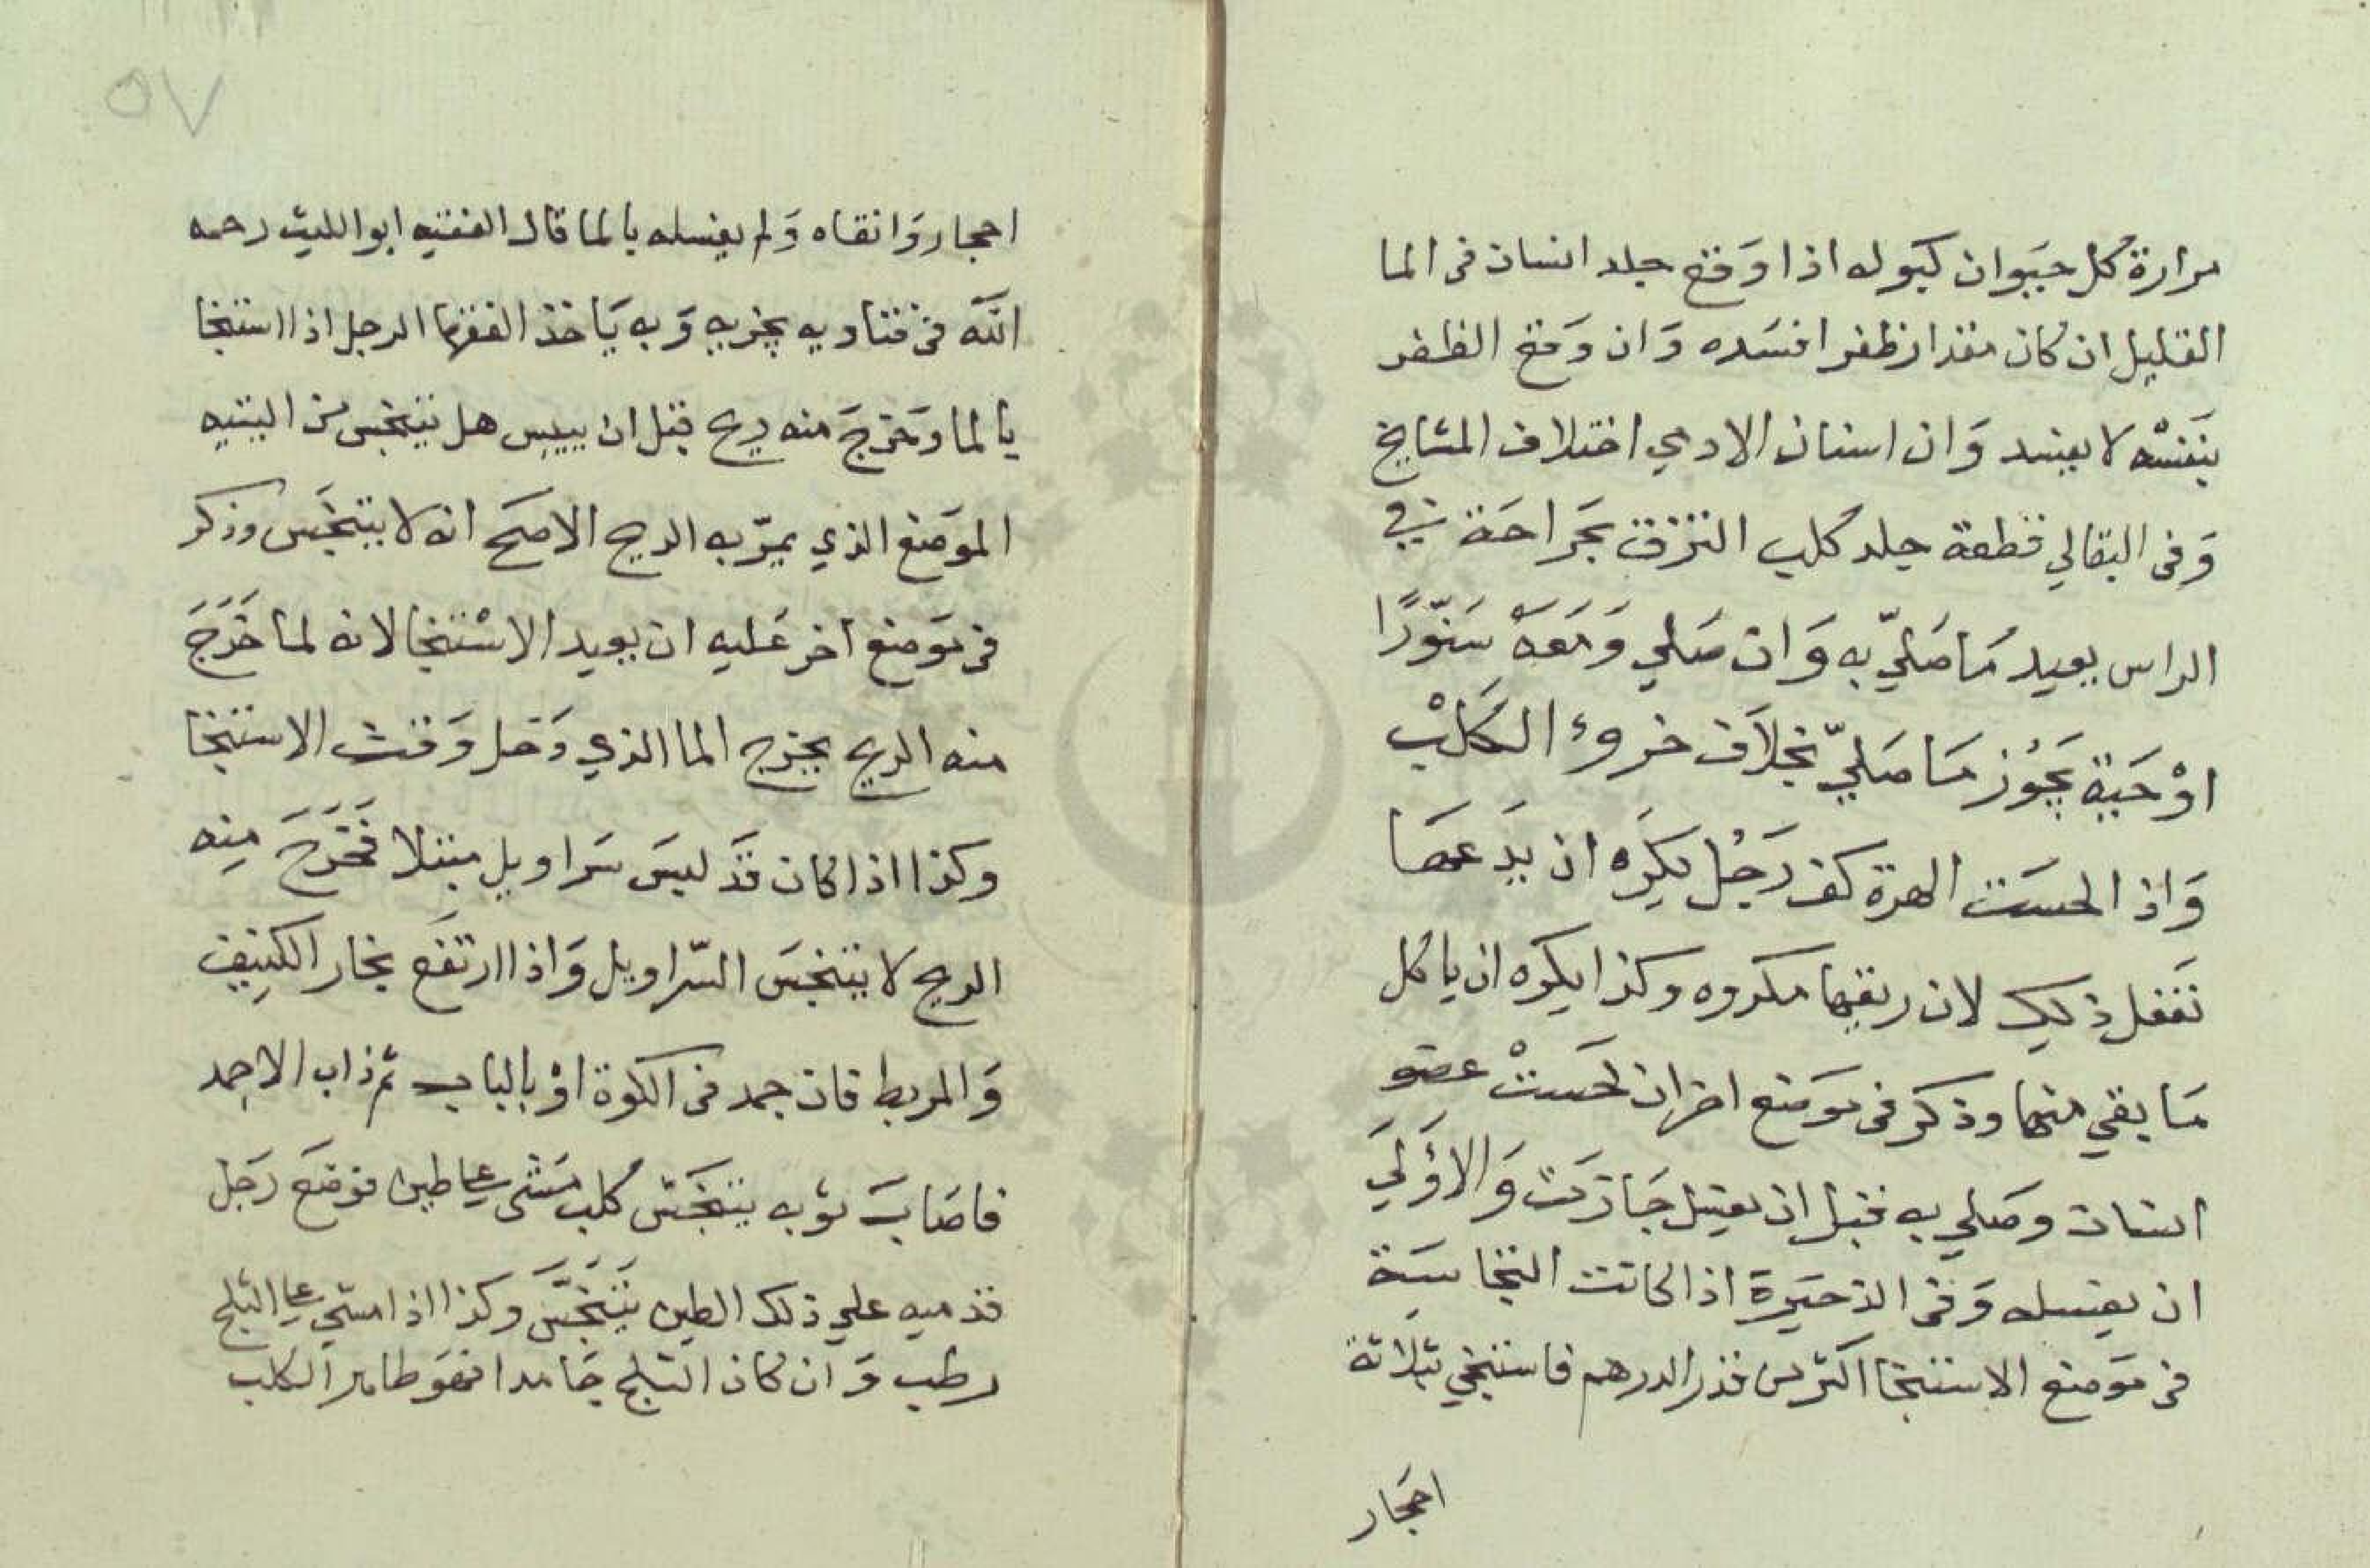 مرارة كل حيوان كبوله اذا وقع جلد انسان فى الما
القليل ان كان مقدار ظفر افسَده وَان وَقع الظفر
بنفسْه لا يفسد وَان اسنان الادمي اختلاف المشايخ
وَفى البقالي قطعة جلد كلب التزق بجَراحَة في
الراس يعيد مَا صَليّ به وَان صَلي وَمَعَهُ سَنّورًا
اوْ حَية يجَوُز مَا صَليّ بخلاَف خروء الكَلْب
وَاذ الحسَت الهرة كف رَجُل يكرَه ان يدَعهَا
تفعَل ذلك لان ريقها مكروه وكذا يكره ان ياكل
مَا بقي منها وذكر فى موَضع اخر ان لحسَتْ عضو
انسان وصَلي به قبل ان يغسل جَازَت وَالاوَلَي
ان يغسله وَفى الذخيَرة اذا كانت النجاسَة
فى موَضع الاستنجا اكثر من قدر الدرهم فاستنجي بثلاَثة
احجَار
٥٧
احجار وَانقاه وَلم يغسله بالما قال الفقيه ابو الليث رحمه
الله فى فتاويه يجزيه وَبه يَاخذ الفقها الرجل اذا استنجا
بالما وَخرَجَ منه ريح قبل ان ييبس هل يتنجس من اليتيه
الموَضع الذي يمرّ به الريح الاصَح انه لا يتنجَس وذكر
فى موَضع اخر عَليه ان يعيد الاسْتنجا لانه لما خَرَجَ
منه الريح يخرج الما الذي دَخل وَقت الاستنجا
وكذا اذا كان قَد لبسَ سَراويل مبتلا فَخَرَجَ مِنه
الريح لا يتنجسَ السّراويل وَاذا ارتفَع بخار الكنِيف
وَالمربط فان جمد فى الكوة اوْ بالباب ثم ذاب الاجمد
فاصَابَ ثوبه يتنجَسّ كلب مَشى على طين فوضَع رَجل
قدميه علي ذلك الطين يَتَنَجَّسَ وكذا اذا مشي على الثلج
رطب وَان كان الثلج جَامدا فهوَ طاهر الكلب